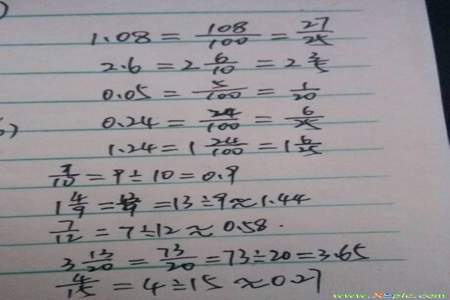 )
1.08 = 108/100 = 27/25
2.6 = 2 6/10 = 2 3/5
0.05 = 5/100 = 1/20
0.24 = 24/100 = 6/25
1.24 = 1 24/100 = 1 6/25
9/10 = 9 ÷ 10 = 0.9
1 4/9 = 13/9 = 13 ÷ 9 ≈ 1.44
7/12 = 7 ÷ 12 ≈ 0.58.
3 13/20 = 73/20 = 73 ÷ 20 = 3.65
4/15 = 4 ÷ 15 ≈ 0.27